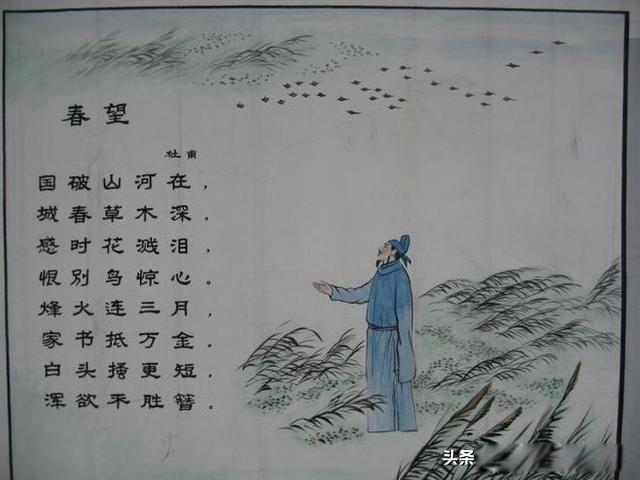 春望
杜甫
国破山河在，
城春草木深。
感时花溅泪，
恨别鸟惊心。
烽火连三月，
家书抵万金。
白头搔更短，
浑欲不胜簪。
头条